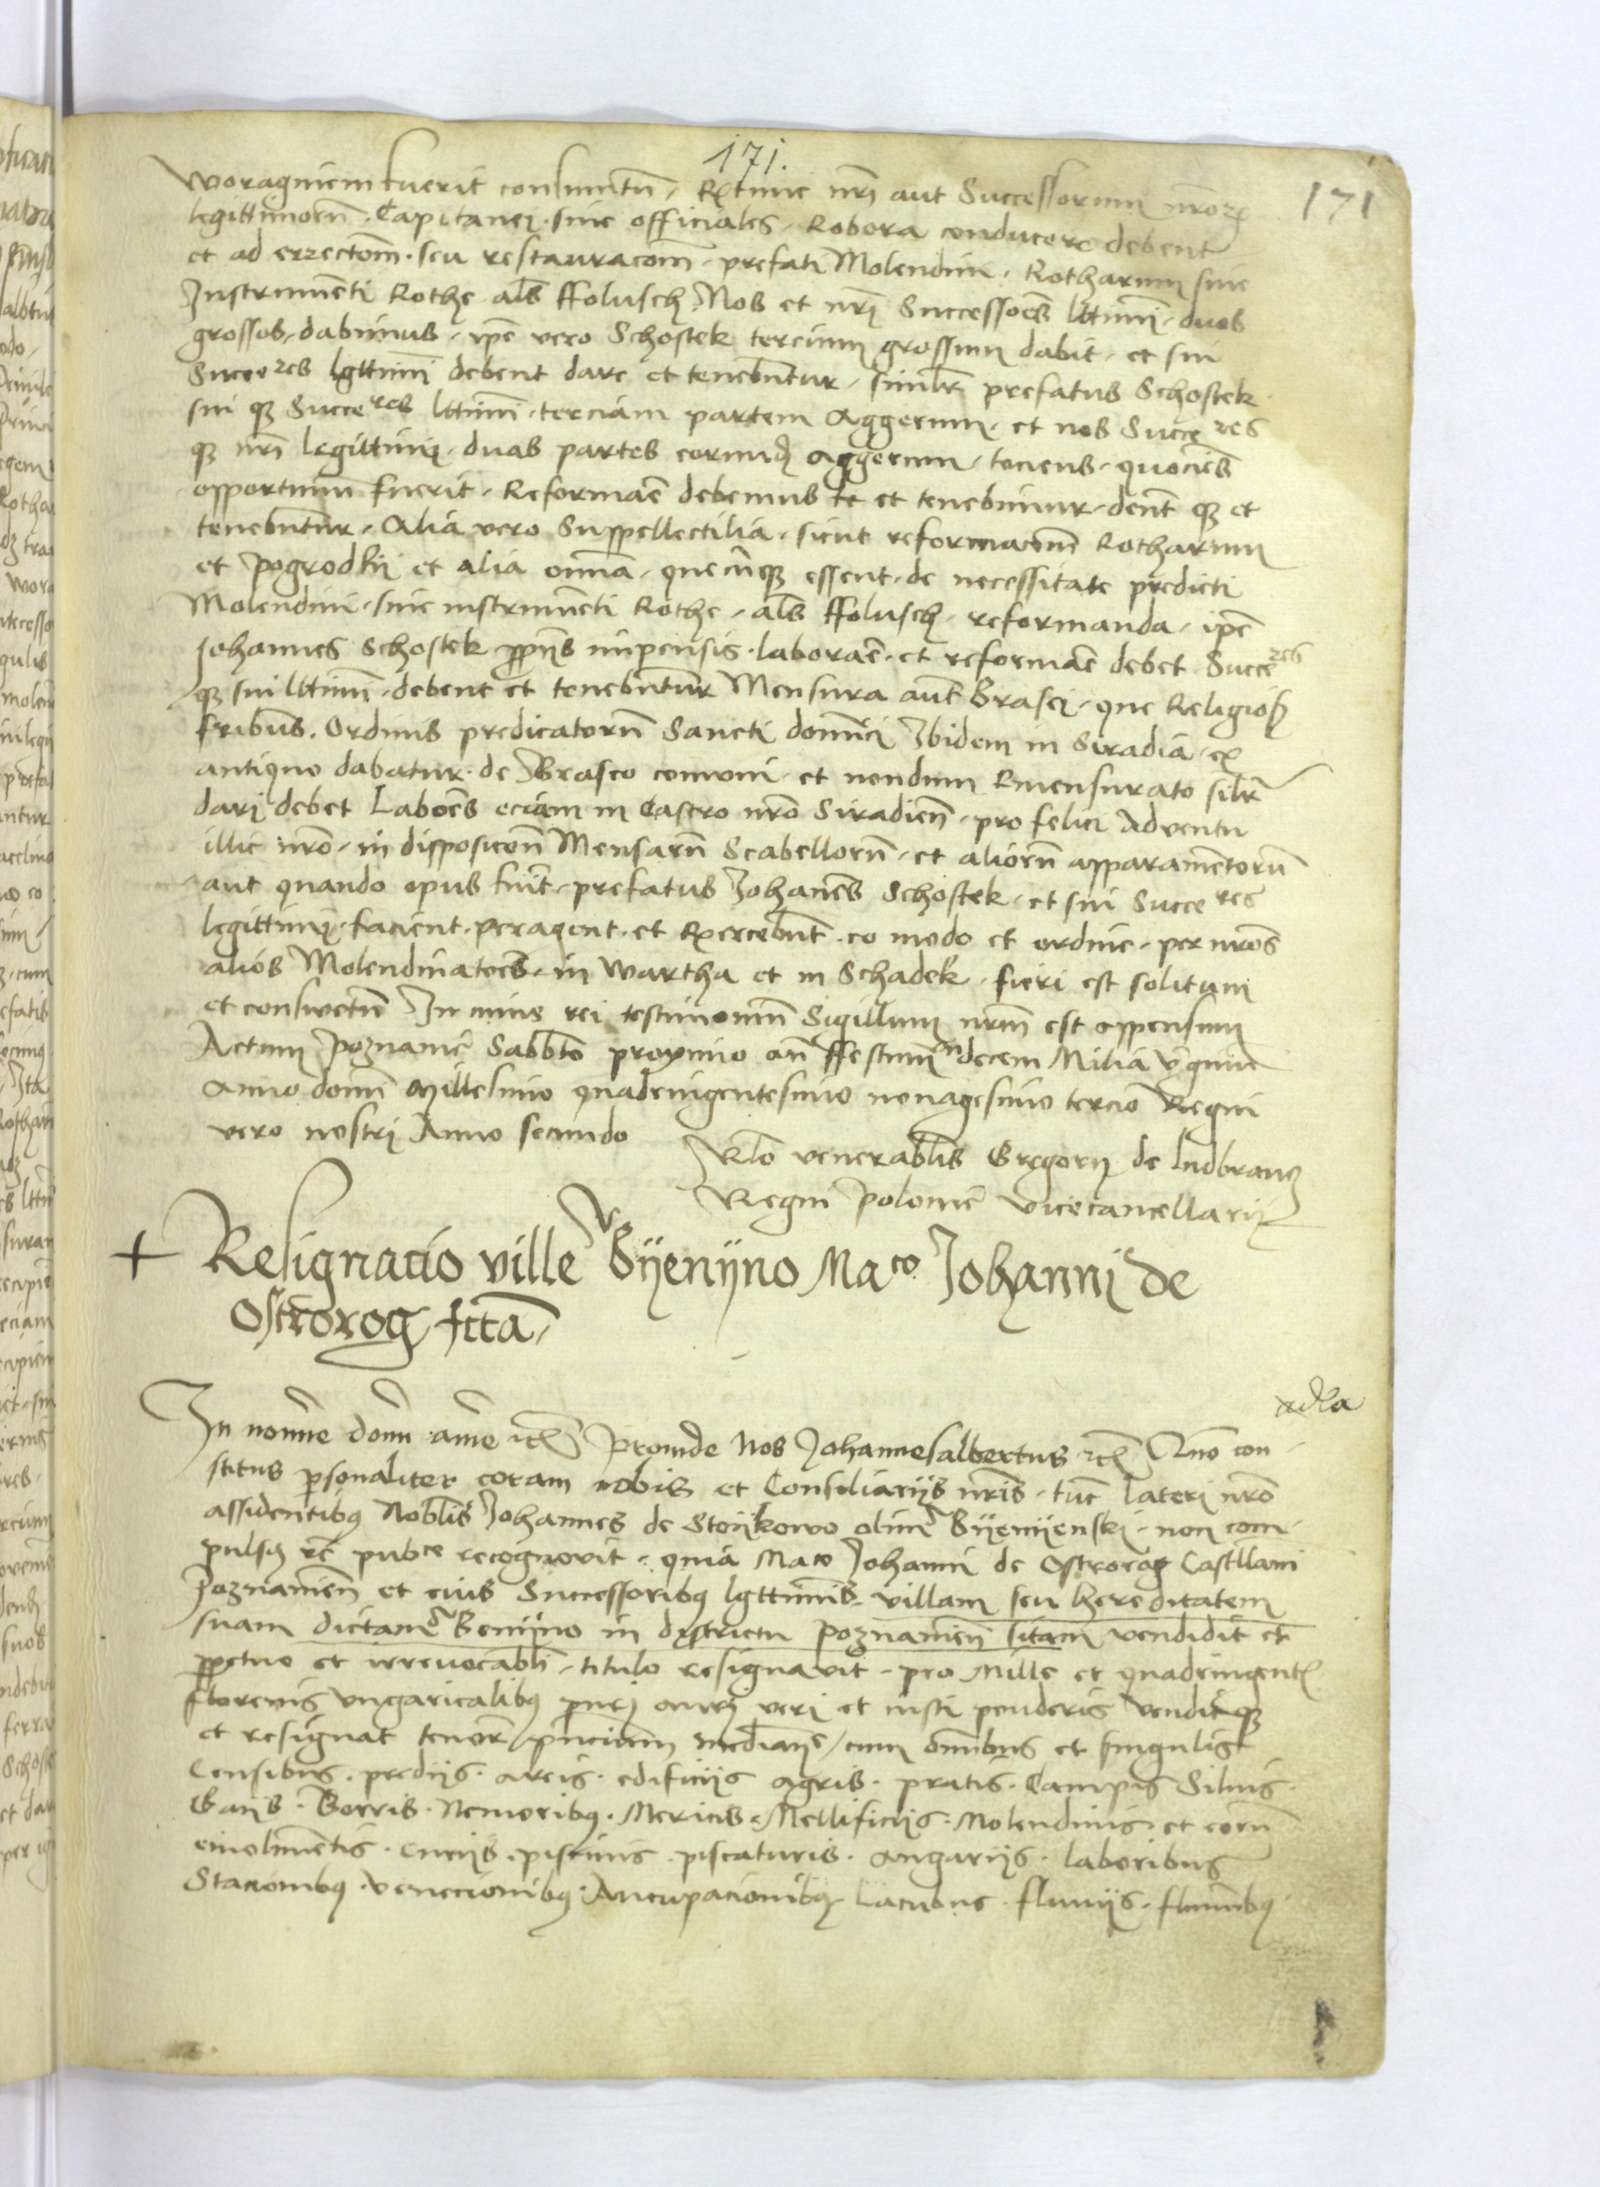 171.
171
woraginem fuerit consumtum, Extunc nri aut Successorum nrorum
legittimorum Capitanei sive officiales, Robora conducere debent
et ad erzectom̄ seu restauracom̄ prefati Molendini, Rotharum sive
Instrumenti Rothe als ffolusch Nos et nri Successoēs lttimi duos
grossos dabimus, ipē vero Schostek tercium grossum dabit, et sui
Succeres lgttimi debent dare et tenebuntur, similr prefatus Schostek
sui qȝ Succeres lttimi terciam partem Aggerum, et nos Succeres
qȝ nri legittimi, duas partes eorundȝ aggerum, tociens quociens
opportunū fuerit, Reformaē debemus et tenebimur, dent qȝ et
tenebuntur, Alia vero Suppellectilia, sicut reformacom̄ Rotharum
et pogrodky et alia omnia, quecūqȝ essent de necessitate predicti
Molendini sive instrumenti Rothe, als ffolusch, reformanda, ipē
Johannes Schostek ppriis impensis laboraē et reformaē debet Succeres
qȝ sui lttimi debent et tenebuntur Mensura aut Brasei, que Religiosȝ
fribus Ordinis predicatorū Sancti domici Ibidem in Siradia ex
antiquo dabatur de Braseo comuni et nondum Emensurato silr
dari debet Laboēs eciam in Castro nro Siradien̄, pro felici Adventu
illic nro, in disposicon̄ Mensarū Scabellorū, et aliorū apparamentorū
aut quando opus fuit, prefatus Johanēs Schostek, et sui Succeres
legittimi facient peragent et Exercebunt eo modo et ordine, per nros
alios Molendinatoēs in Wartha et in Schadek fieri est solitum
et conswetū In cuius rei testimoniū Sigillum nrm̄ est appensum
Actum poznanie Sabbto proximo an̄ ffestum undecem Milia virginū
Anno domī Millesimo quadringentesimo nonagesimo tercio Regni
vero nostri Anno secundo
Rlo venerablis Gregorij de ludbrancȝ
Regni polonie vicecancellarij
+ Resignacio ville Byenyno Maco Johanni de
Ostrorog fcta
adla
In nomine domi ame etc Proinde Nos Johannesalbertus etc Quo con
stitus psonaliter coram nobis et Consiliariis nris tūc lateri nro
assidentibȝ Noblis Johannes de Stoykowo olim Byenyenski non com
pulsȝ etc pubce recognovit, quia Maco Johanni de Ostrorog Castllani
poznanien̄ et eius Successoribȝ lgttimis villam seu hereditatem
suam dictam Benyno in districtu poznanien̄ sitam vendidit et
ppetuo et irrevocabli titulo resignavit, pro Mille et quadringentȝ
florenis ungaricalibȝ puri auri veri et iusti ponderis vendit qȝ
et resignat tenorē pncium mediantē, cum omibus et singulis
Censibus prediis areis edificiis agris pratis Campis Silvis
Gaiis Borris Nemoribȝ Mericis Mellificiis Molendinis et eorū
emolimētis curiis piscinis piscaturis angariis laboribus
Stacionibȝ venecionibȝ Aucupacionibȝ lacubus fluviis fluminibȝ